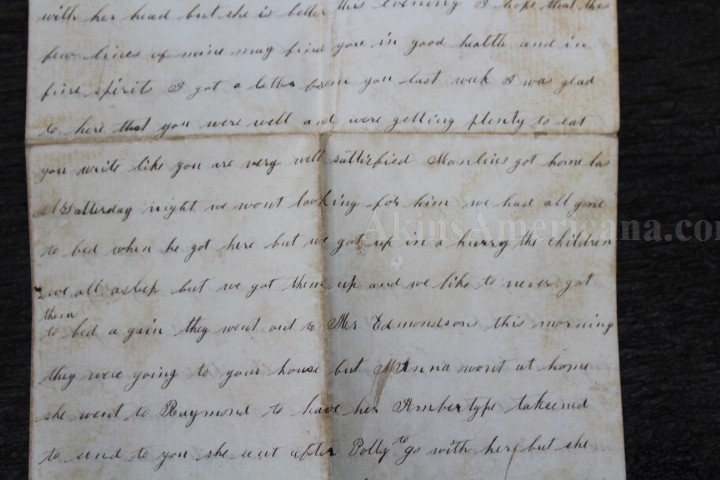 with her head but she is better this evening I hope that this
few lines of mine may find you in good health and in
fine spirits I got a letter from you last week I was glad
to here that you were well and were getting plenty to eat
you write like you are very well sattisfied Manlius got home las
Satterday night we wont looking for him we had all gone
to bed when he got here but we got up in a hurry the children
we all asleep but we got them up and we like to never got
them
to bed a gain they went out to Mr Edmondsons this morning
they were going to your house but Minna wont at home
she went to Raymond to have her Ambertype taken
to send to you she sent after Polly to go with her but she
AkinsAmericana.co